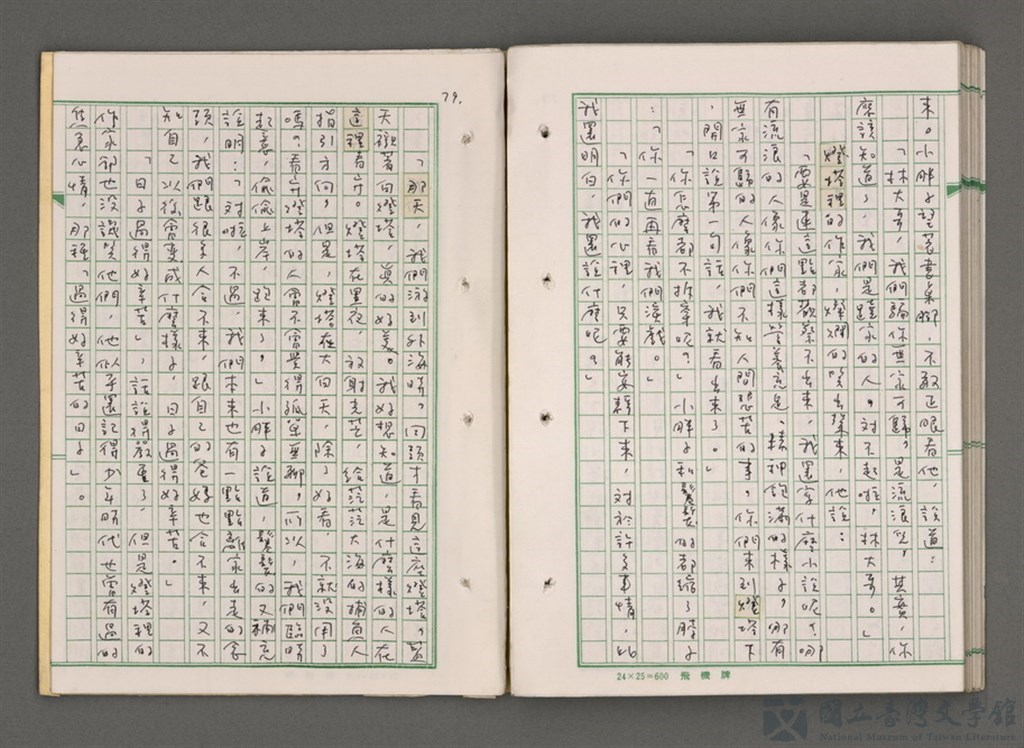 來。小胖子望著書桌腳，不敢正眼看他，說道：
「林大哥，我們騙你無家可歸，是流浪兒，其實，你
應該知道了，我們是蹺家的人。對不起啦，林大哥。」
燈塔裡的作家，燦爛的笑出聲來，他說：
「要是連這點都觀察不出來，我還寫什麼小說呢？哪
有流浪的人像你們這樣營養充足、精神飽滿的樣子，哪有
無家可歸的人像你們不知人間悲苦的事。你們來到燈塔下
，開口說第一句話，我就看出來了。」
「你怎麼都不拆穿呢？」小胖子和髮髮的都縮了脖子
：「你一直再看我們演戲。」
「你們的心裡，只要能安靜下來，對於許多事情，比
我還明白，我還說什麼呢？」
24×25=600 飛機牌
79.
「那天，我們游到外海時，回頭才看見這座燈塔，藍
天襯著白燈塔，真的好美。我好想知道，是什麼樣的人在
這裡看守。燈塔在黑夜，放射光芒，給茫茫大海的捕魚人
指引方向，但是，燈塔在大白天，除了好看，不就沒用了
嗎？看守燈塔的人會不會覺得孤單無聊，所以，我們臨時
起意，偷偷上岸，跑來了。」小胖子說道，髮髮的又補充
說明：「對啦，不過，我們本來也有一點點離家出走的念
頭，我們跟很多人合不來，跟自己的爸媽也合不來，又不
知自己以後會變成什麼樣子，日子過得好辛苦。」
「日子過得好辛苦」，話說得嚴重了，但是燈塔裡的
作家卻也沒譏笑他們，他似乎還記得少年時代也曾有過的
焦急心情，那種「過得好辛苦的日子」。
國立臺灣文學館
National Museum of Taiwan Literature